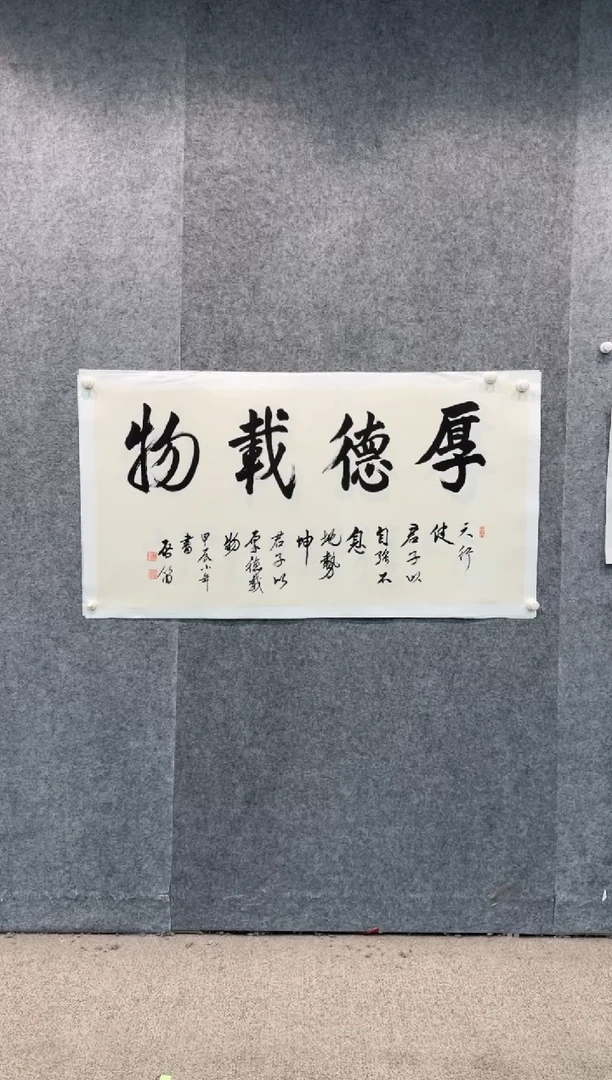 厚德載物
天行
健
君子以
自強不
息
地勢
坤
君子以
厚德載
物
甲辰小年
書
啟笛